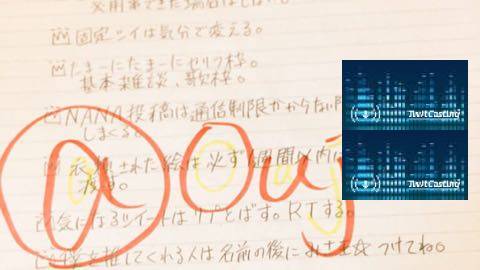 できた場合はしない。
固定ツイは気分で変える。
たまーにたまーにセリフ枠。
基本雑談、歌枠。
NANA投稿は通信制限かからない
しまくる。
された絵は必ず1週間以内に
渡す。
気になるツイートはリプとばす。RTする。
推してくれる人は名前の後に つけてね。
a o u
TwitCasting
TwitCasting